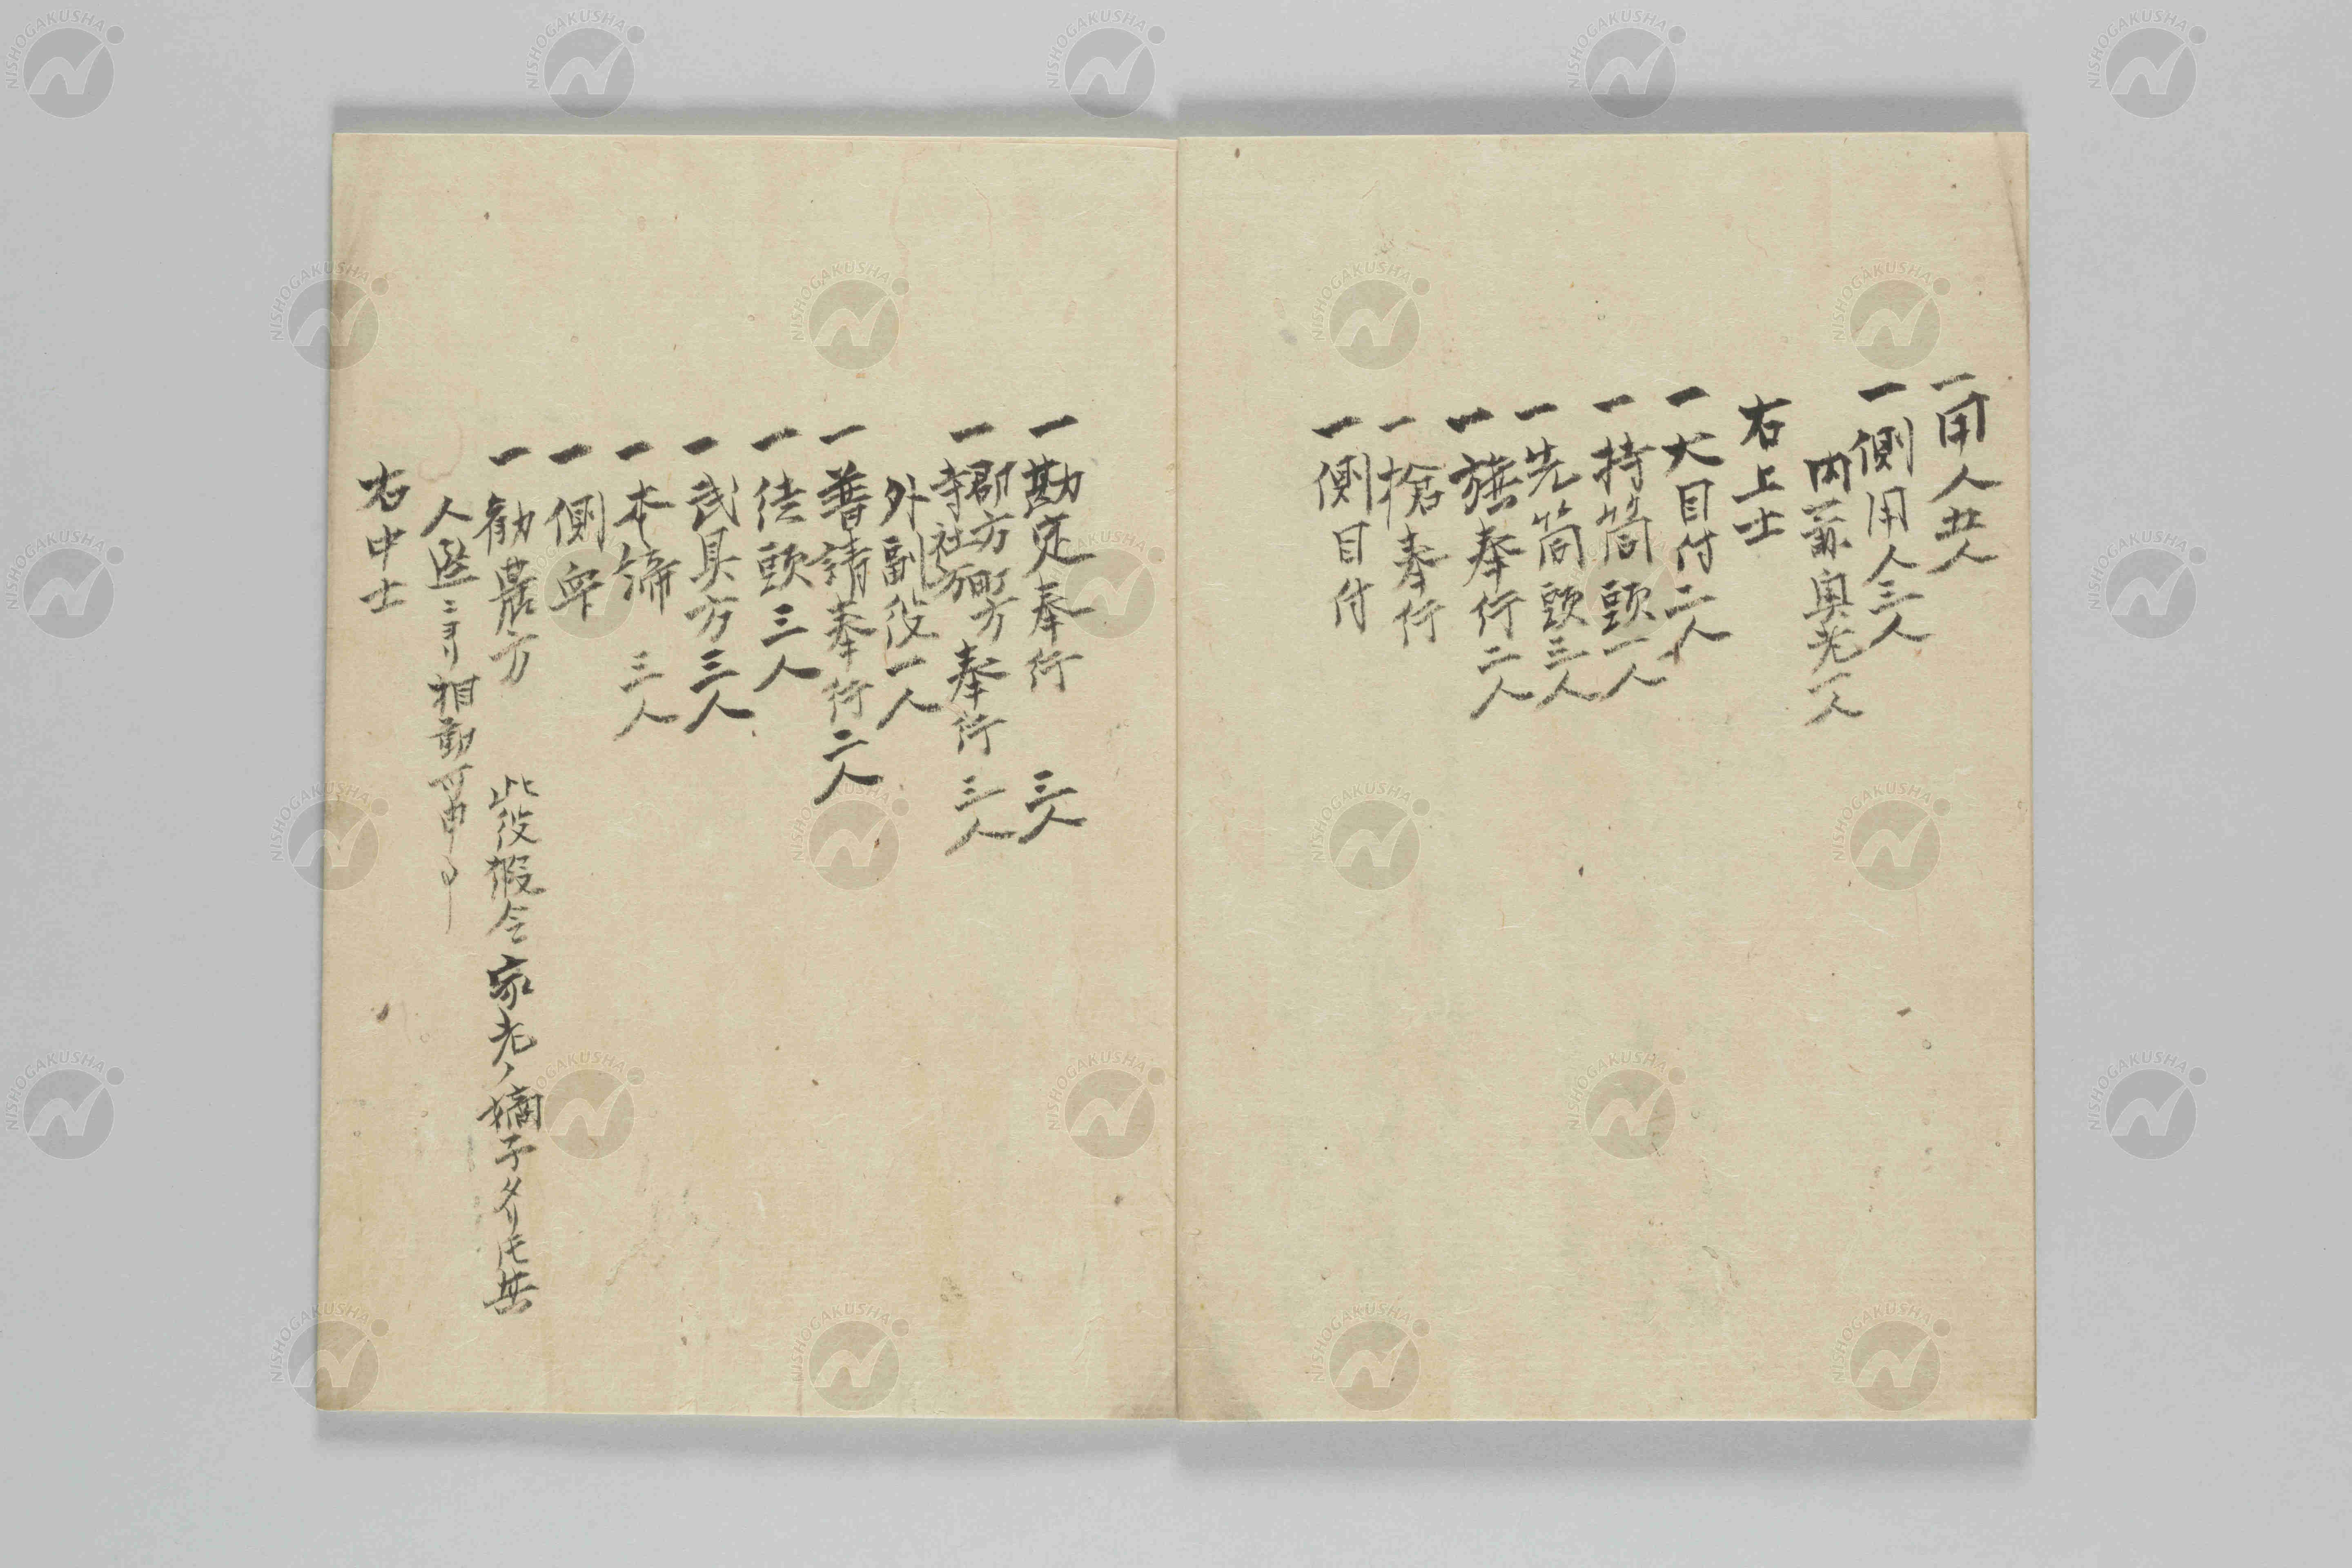 一用人共人
一側用人三人
内兼奥老一人
右上士
一大目付二人
一持筒頭一人
一先筒頭三人
一旗奉行二人
一槍奉行
一側目付
一勘定奉行 三人
一郡方町方寺社方奉行 三人
外副役一人
一普請奉行二人
一徒頭三人
一武具方三人
一本締 三人
一側
一勧農方 此役假令家老ノ嫡子タリ圧其
人選ニヨリ相勤可申事
右中士
NISHOGAKUSHA